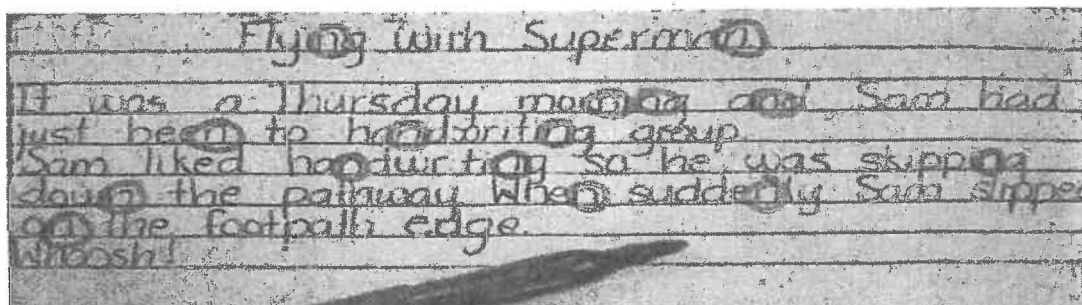 Flying with Superman
It was a Thursday morning and Sam had
just been to handwriting group.
Sam liked handwriting so he was skipping
down the pathway When suddenly Sam slipped
on the footpath edge.
Whoosh!